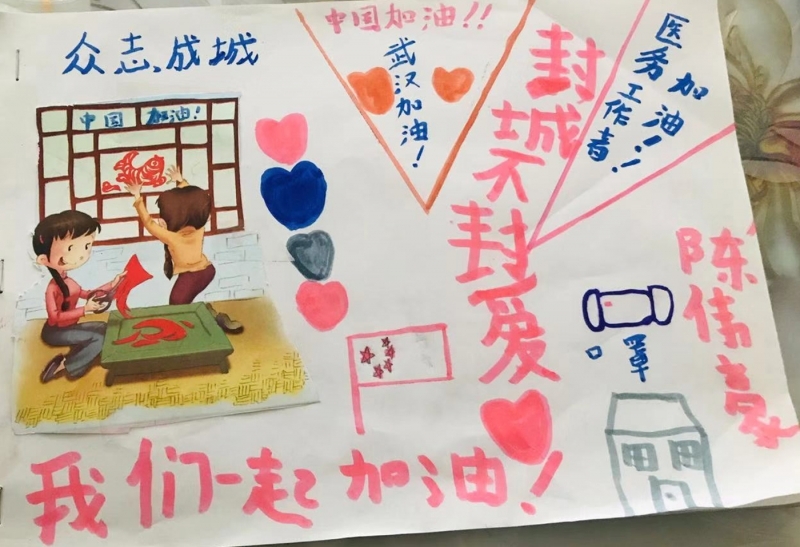 众志成城
中国加油!!
武汉加油!
封城不封爱
医务
工作者
加油!!
中国 加油!
陈伟豪
口罩
我们一起加油!